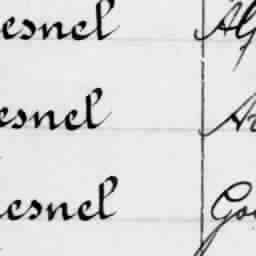 esnel Alf
esnel A
esnel Go